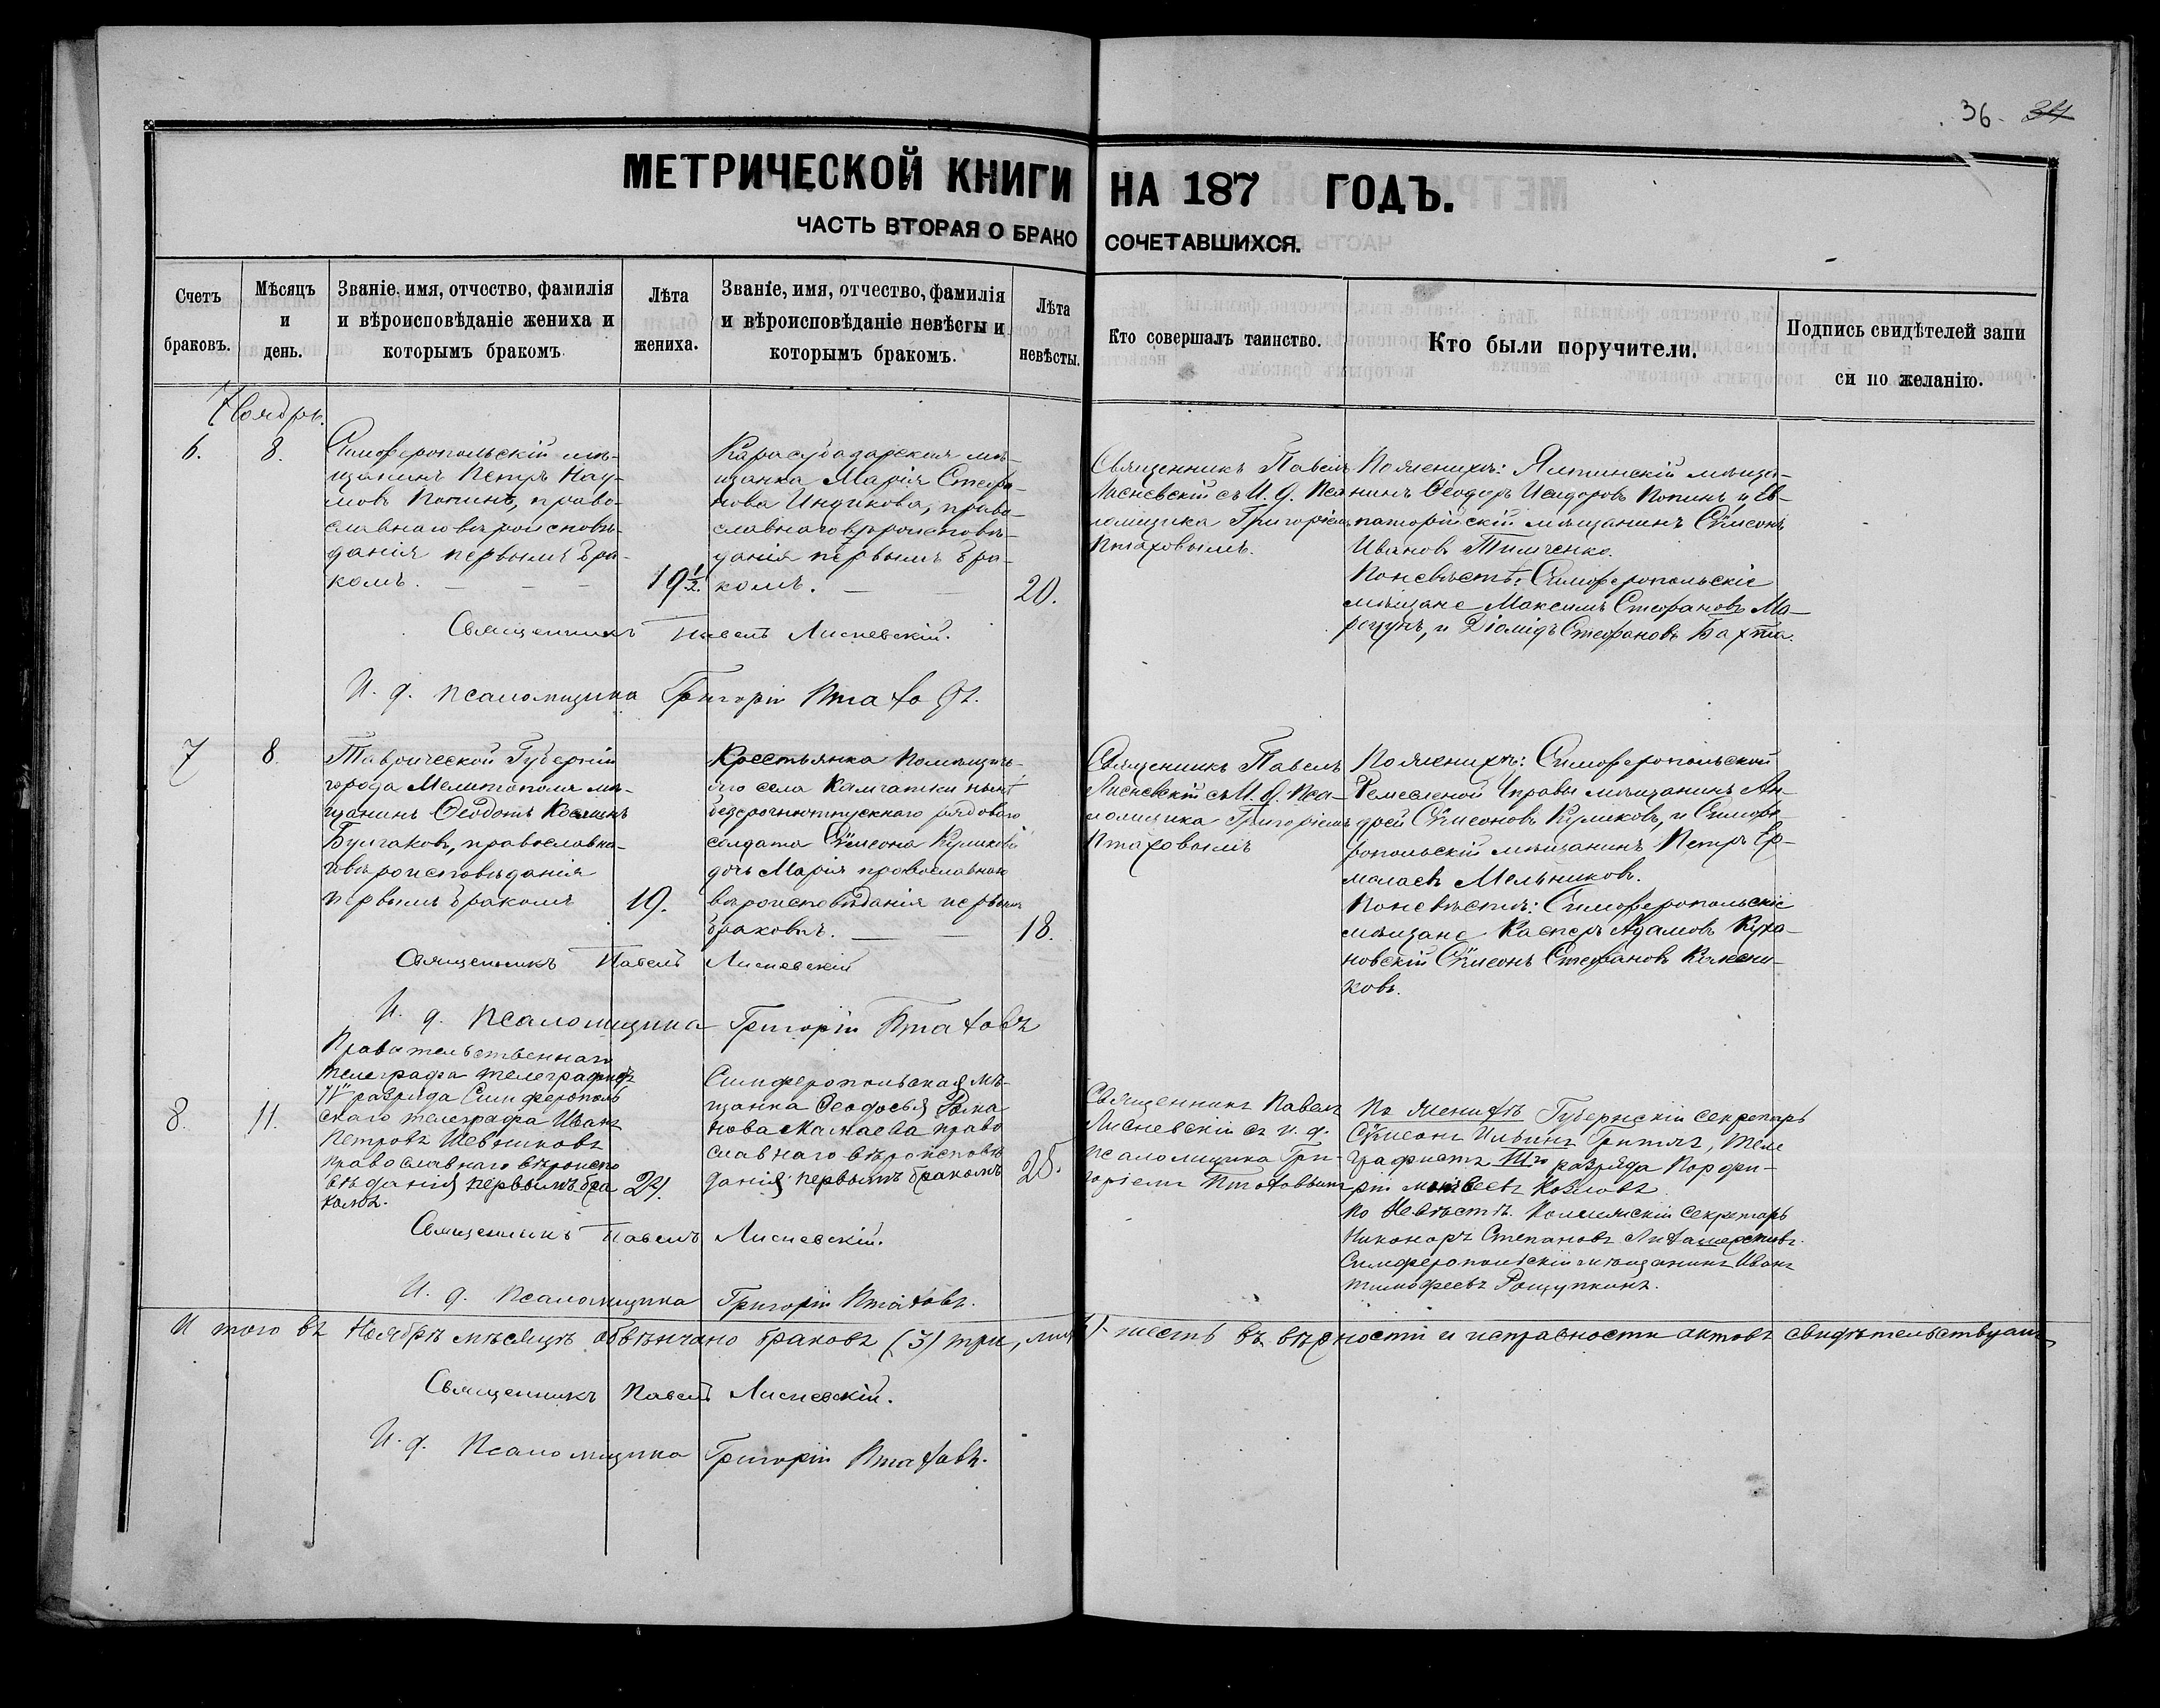 36. 34
МЕТРИЧЕСКОЙ КНИГИ НА 187 ГОДЪ.
ЧАСТЬ ВТОРАЯ О БРАКО СОЧЕТАВШИХСЯ.
Счетъ браковъ.
Мѣсяцъ и день.
Званіе, имя, отчество, фамилія
и вѣроисповѣданіе жениха и
которымъ бракомъ
Лѣта
жениха.
Званіе, имя, отчество, фамилія
и вѣроисповѣданіе невѣсты и
которымъ бракомъ.
Лѣта
невѣсты.
Кто совершалъ таинство.
Кто были поручители.
Подпись свидѣтелей запи
си по желанію.
Ноябрь.
6.
8.
Симферопольскій мѣ-
щанинъ Петръ Нау-
мовъ Попинъ, право-
славнаго вѣроисповѣ-
данія первымъ бра-
комъ.
19½.
Карасубазарская мѣ-
щанка Марія Стефа-
нова Индикова, право-
славнаго вѣроисповѣ-
данія первымъ бра-
комъ.
20.
Священникъ Павелъ
Лисневскій съ И. д. Пса-
ломщика Григоріемъ
Птаховымъ.
По женихѣ: Ялтинскій мѣща-
нинъ Ѳеодоръ Исидоровъ Попинъ, и Ев-
паторійскій мѣщанинъ Сѵмеонъ
Ивановъ Тимченко.
По невѣстѣ: Симферопольскіе
мѣщане Максимъ Стефановъ Ма-
рецунъ, и Діомидъ Стефановъ Бахта.
Священникъ Павелъ Лисневскій.
И. д. псаломщика Григорій Птаховъ.
7
8.
Таврической Губерніи
города Мелитополя мѣ-
щанинъ Ѳеодотъ Косминъ
Булгаковъ, православна-
го вѣроисповѣданія
первымъ бракомъ
19.
Крестьянка Помѣщичь-
яго села Камчатки нынѣ
безсрочноотпускнаго рядового
солдата Сѵмеона Куликова
дочь Марія православнаго
вѣроисповѣданія первымъ
бракомъ.
18.
Священникъ Павелъ
Лисневскій съ И. д. Пса-
ломщика Григоріемъ
Птаховымъ
По женихѣ: Симферопольской
Ремесленой Управы мѣщанинъ Ан-
дрей Сѵмеоновъ Куликовъ, и Симфе-
ропольскій мѣщанинъ Петръ Ер-
молаевъ Мельниковъ.
По невѣстѣ: Симферопольскіе
мѣщане Касперъ Адамовъ Куха-
новскій Сѵмеонъ Стефановъ Колесни-
ковъ.
Священникъ Павелъ Лисневскій
И. д. Псаломщика Григорій Птаховъ
8.
11.
Правительственнаго
телеграфа телеграфистъ
IV разряда Симферополь
скаго телеграфа Иванъ
Петровъ Шевниковъ
православнаго вѣроиспо
вѣданія первымъ бра
комъ.
24.
Симферопольская мѣ-
щанка Ѳеодосья Рома
нова Мамаева право
славнаго вѣроисповѣ
данія первымъ бракомъ
25.
Священникъ Павелъ
Лисневскій съ и. д.
псаломщика Гри-
горіемъ Птаховымъ
По женихѣ Губернскій секретарь
Сѵмеонъ Ильинъ, теле
графистъ III-го разряда Порфи-
рій Козловъ
По невѣстѣ. Колежскій секретарь
Никоноръ Степановъ
Симферопольскій мѣщанинъ Иванъ
Тимофеевъ Рощупкинъ.
Священникъ Павелъ Лисневскій.
И. д. Псаломщика Григорій Птаховъ.
И того въ Ноябрѣ мѣсяцѣ обвѣнчано браковъ (3) три, лицъ шесть въ вѣрности и исправности актовъ свидѣтельствуемъ
Священникъ Павелъ Лисневскій.
И. д. Псаломщика Григорій Птаховъ.